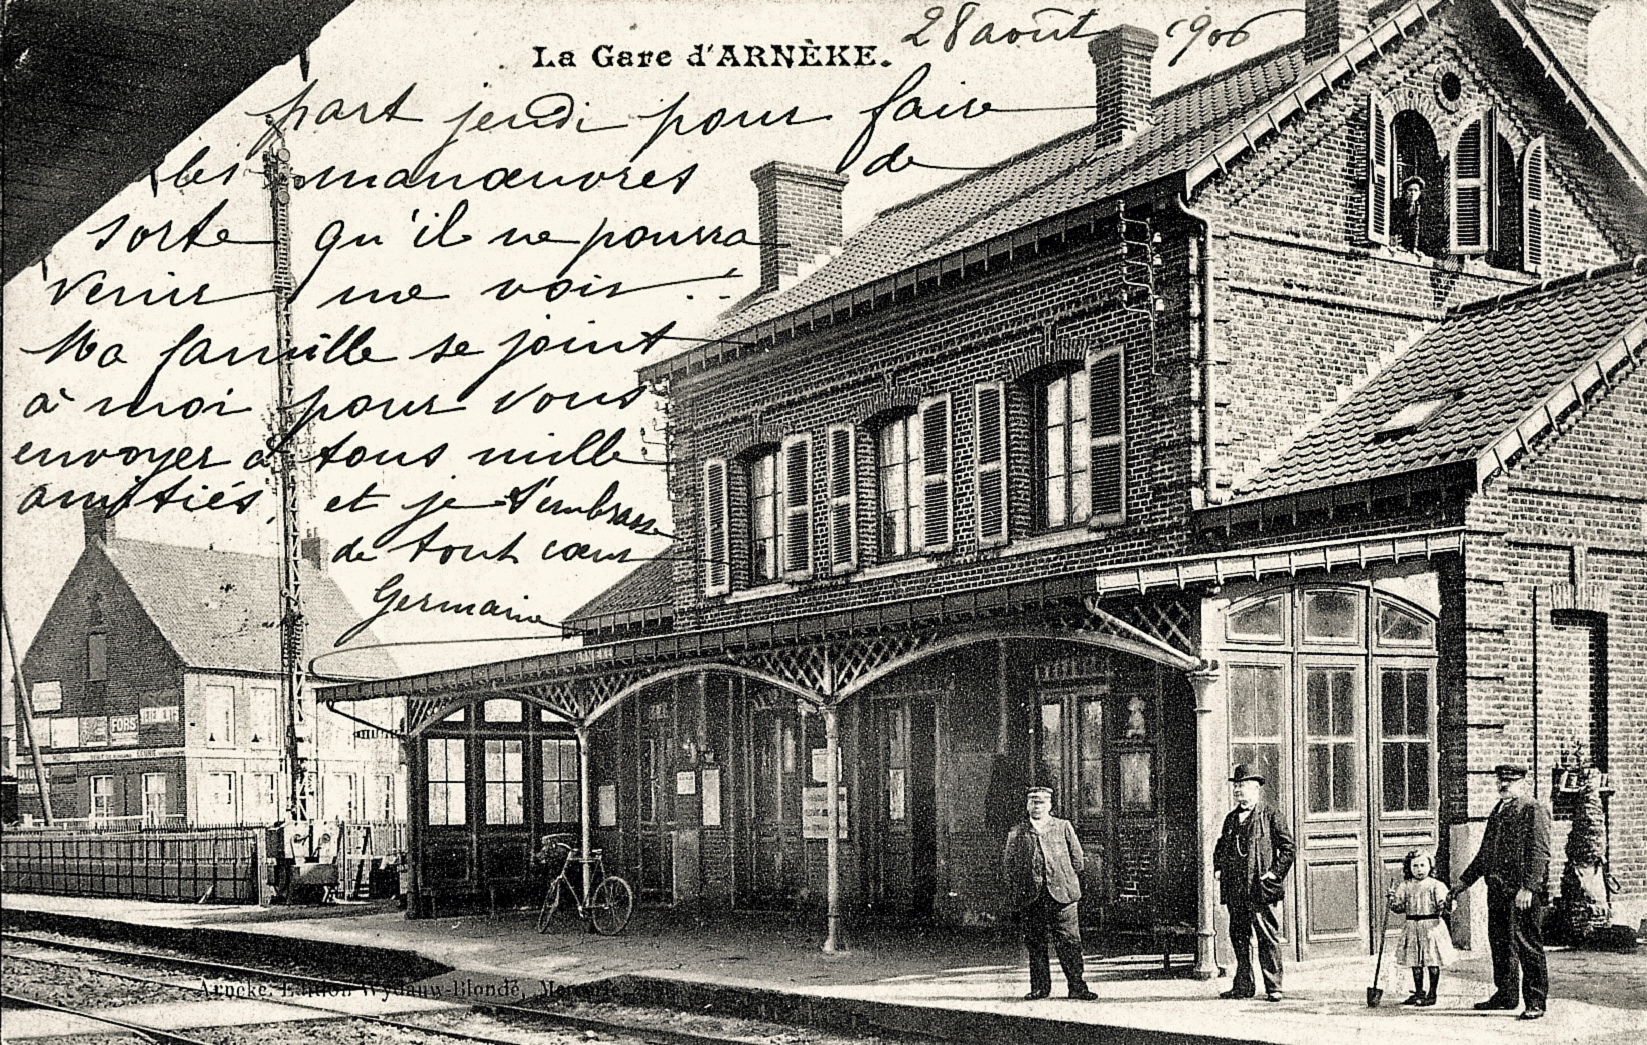 La Gare d'ARNÈKE.
28 août 1906
part jeudi pour faire
les manœuvres de
sorte qu'il ne pourra
venir me voir...
Ma famille se joint
à moi pour vous
envoyer à tous mille
amitiés, et je t'embrasse
de tout cœur
Germaine
FORS
VETEMENTS
Arneke. Edition Wydauw-Blondé,